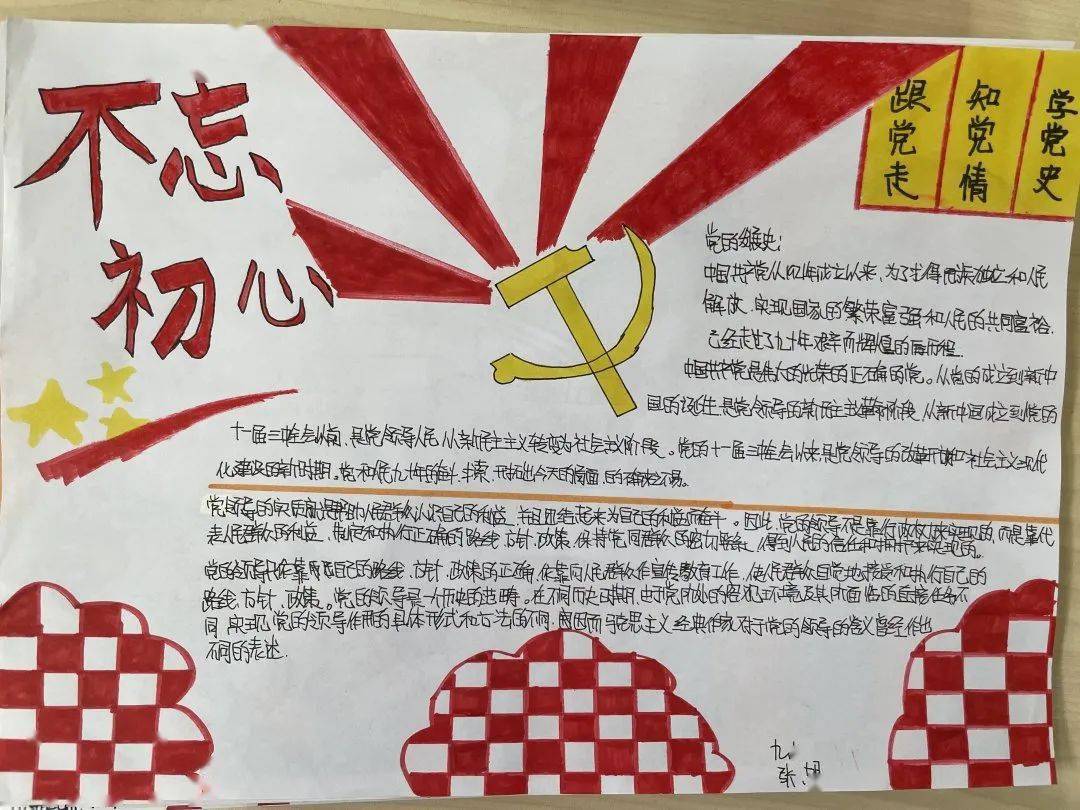 不忘
初心
学党史
知党情
跟党走
党的雄史：
中国共产党从1921年成立以来，为了求得民族独立和人民
解放、实现国家的繁荣富强和人民的共同富裕，
已经走过了九十年艰辛而辉煌的历程.
中国共产党是伟大的光荣的正确的党。从党的成立到新中
国的诞生是党领导的新民主主义革命阶段，从新中国成立到党的
十一届三中全会以前，是党领导人民从新民主主义转变为社会主义阶段。党的十一届三中全会以来是党领导的改革开放和社会主义现代
化建设的新时期。党和人民九十年的奋斗、求索、开拓出今天的局面，的确来之不易。
党领导的实质就是帮助人民群众认识自己的利益，并且团结起来为自己的利益而奋斗。因此，党的领导不是靠行政权力来实现的，而是靠代
表人民群众的利益，制定和执行正确的路线、方针、政策，保持党同群众的密切联系，得到人民的信任和拥护来实现的。
党的领导只能靠自己的路线、方针、政策的正确，依靠向人民群众作宣传教育工作，使人民群众自觉地接受和执行自己的
路线、方针、政策。党的领导是一个历史的范畴。在不同历史时期，由于党所处的客观环境及其所面临的具体任务不
同，实现党的领导作用的具体形式和方法的不同，因而马克思主义经典作家对于党的领导的含义曾经作出
不同的表述.
张